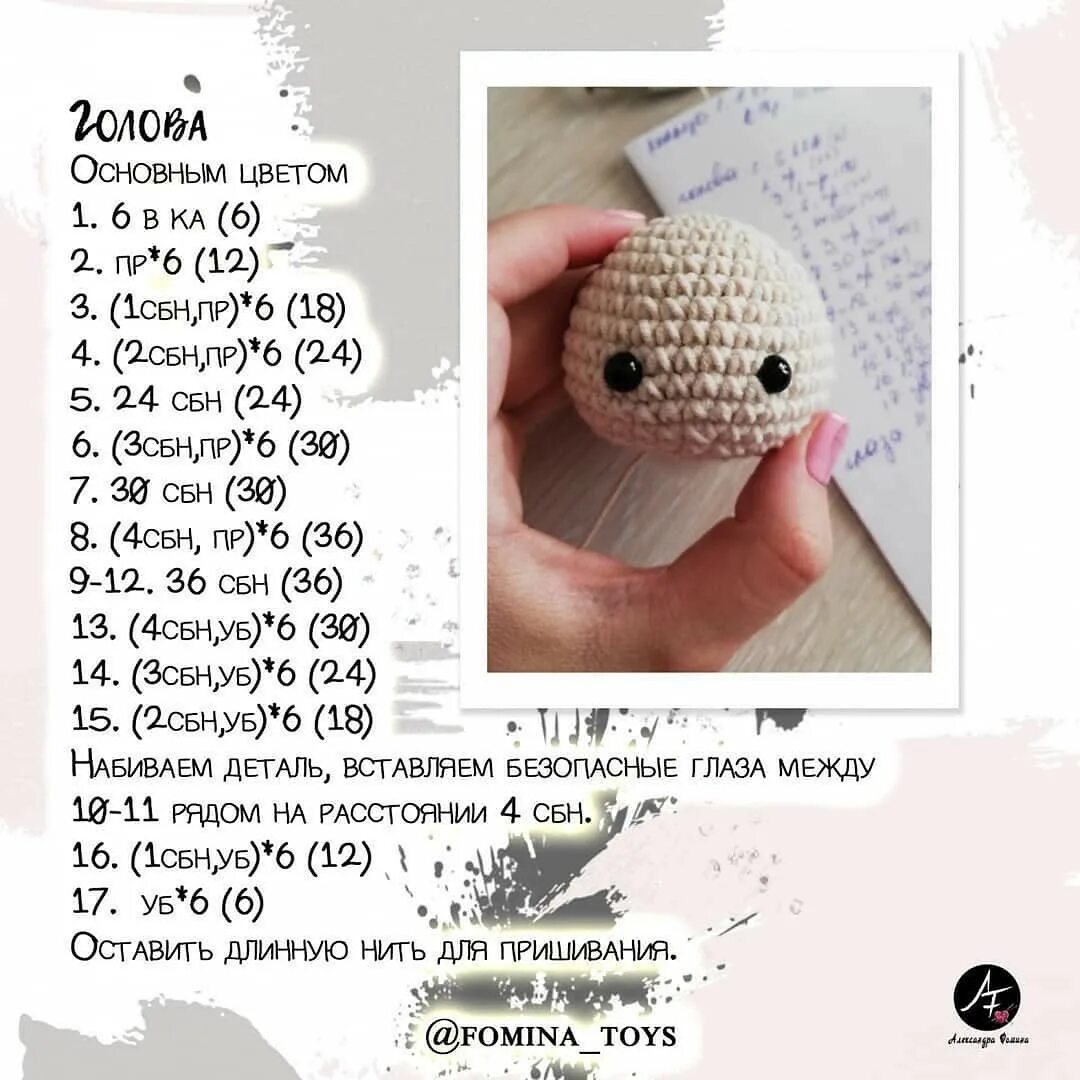 Голова
Основным цветом
1. 6 в ка (6)
2. пр*6 (12)
3. (1сбн,пр)*6 (18)
4. (2сбн,пр)*6 (24)
5. 24 сбн (24)
6. (3сбн,пр)*6 (30)
7. 30 сбн (30)
8. (4сбн, пр)*6 (36)
9-12. 36 сбн (36)
13. (4сбн,уб)*6 (30)
14. (3сбн,уб)*6 (24)
15. (2сбн,уб)*6 (18)
Набиваем деталь, вставляем безопасные глаза между
10-11 рядом на расстоянии 4 сбн.
16. (1сбн,уб)*6 (12)
17. уб*6 (6)
Оставить длинную нить для пришивания.
@FOMINA_TOYS
AF
Александра Фомина
голова
глаза